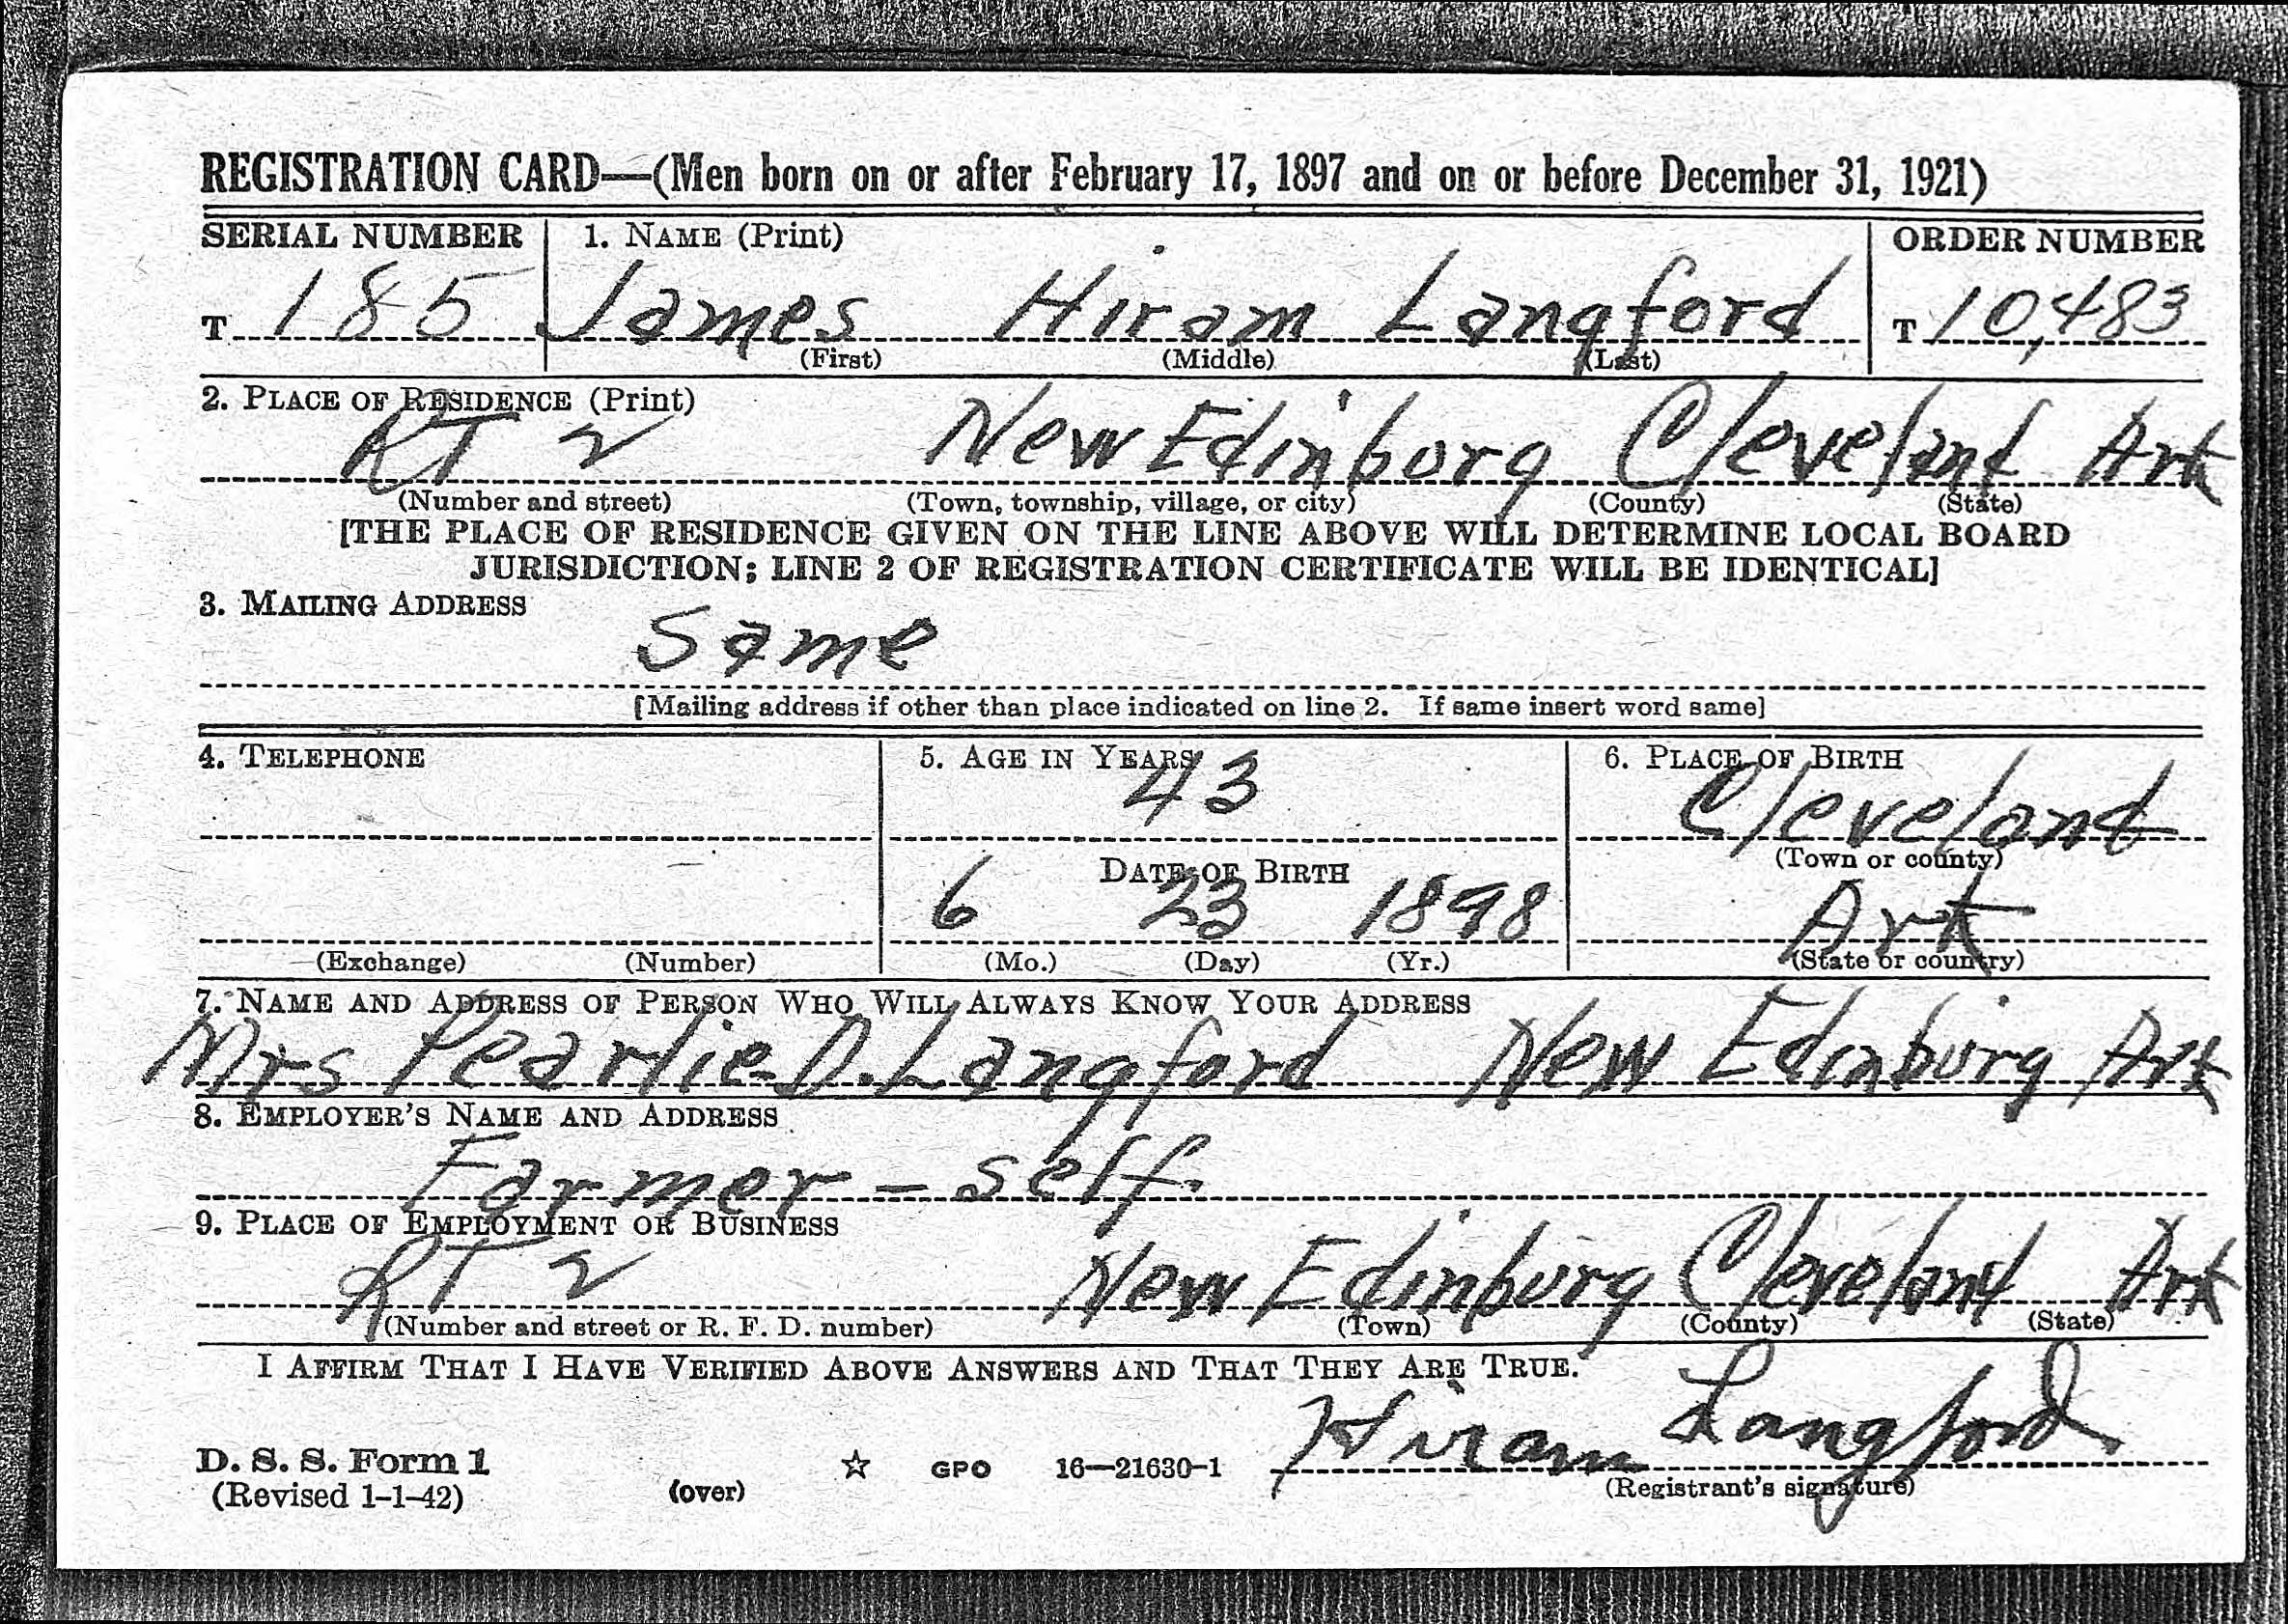 REGISTRATION CARD—(Men born on or after February 17, 1897 and on or before December 31, 1921)
SERIAL NUMBER 1. NAME (Print) ORDER NUMBER
T 185 James Hiram Langford T 10,483
(First) (Middle) (Last)
2. PLACE OF RESIDENCE (Print)
RT 2 New Edinburg Cleveland Ark
(Number and street) (Town, township, village, or city) (County) (State)
[THE PLACE OF RESIDENCE GIVEN ON THE LINE ABOVE WILL DETERMINE LOCAL BOARD
JURISDICTION; LINE 2 OF REGISTRATION CERTIFICATE WILL BE IDENTICAL]
3. MAILING ADDRESS
Same
[Mailing address if other than place indicated on line 2. If same insert word same]
4. TELEPHONE 5. AGE IN YEARS 6. PLACE OF BIRTH
43 Cleveland
(Town or county)
DATE OF BIRTH
6 23 1898 Ark
(Exchange) (Number) (Mo.) (Day) (Yr.) (State or country)
7. NAME AND ADDRESS OF PERSON WHO WILL ALWAYS KNOW YOUR ADDRESS
Mrs Pearlie D. Langford New Edinburg Ark
8. EMPLOYER'S NAME AND ADDRESS
Farmer - self.
9. PLACE OF EMPLOYMENT OR BUSINESS
RT 2 New Edinburg Cleveland Ark
(Number and street or R. F. D. number) (Town) (County) (State)
I AFFIRM THAT I HAVE VERIFIED ABOVE ANSWERS AND THAT THEY ARE TRUE.
Hiram Langford
D. S. S. Form 1
(Revised 1-1-42) (over) ☆ GPO 16—21630-1 (Registrant's signature)